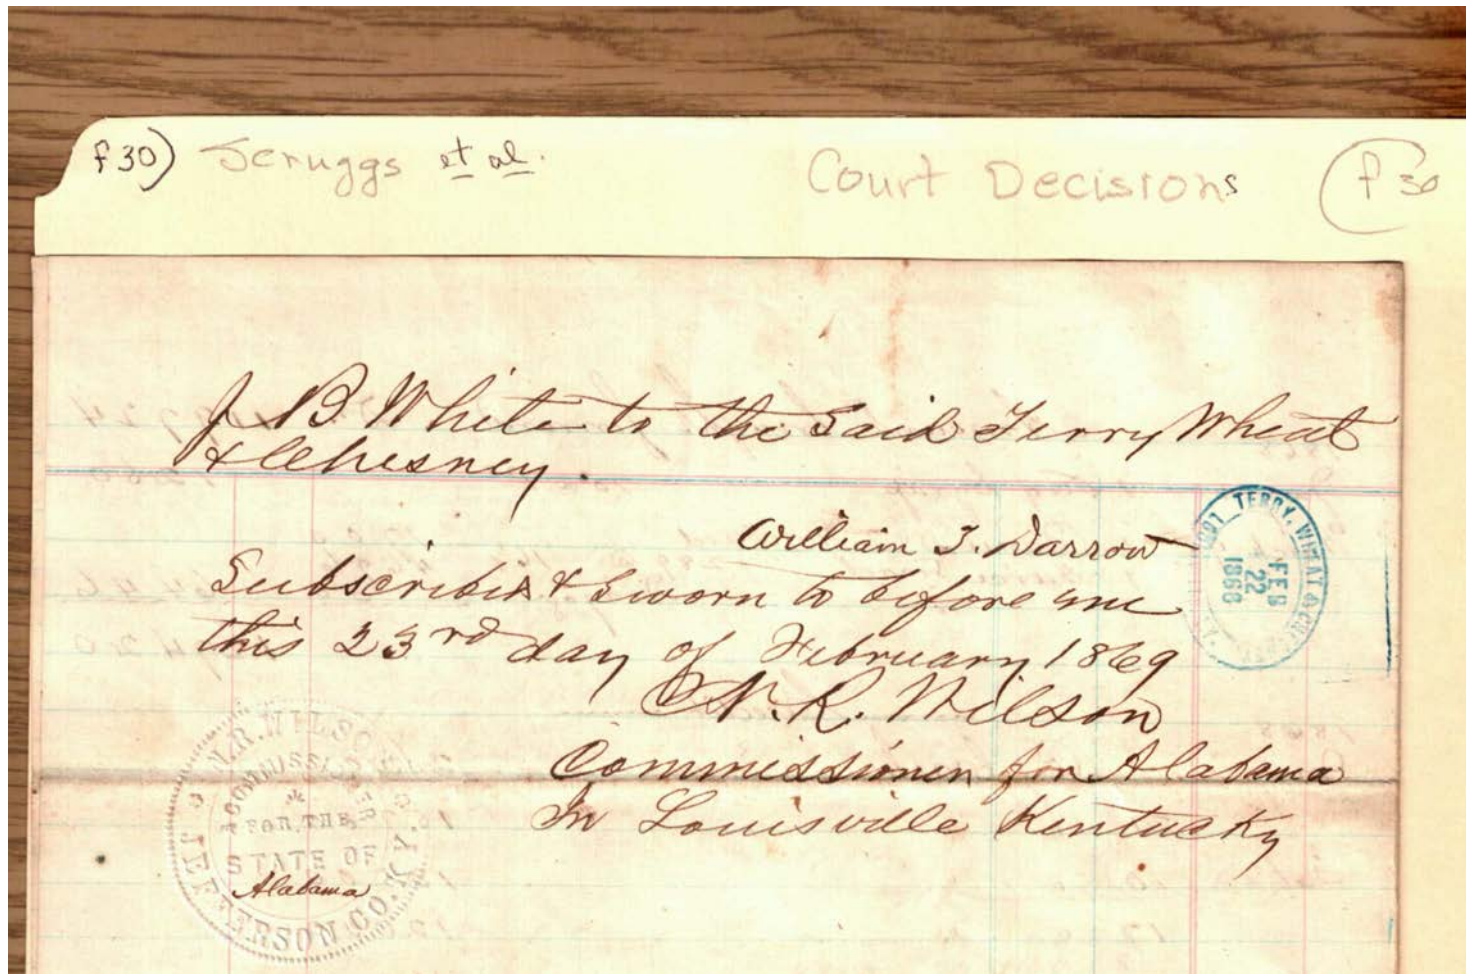 f 30) Scruggs et al. Court Decisions (f 30
J B White to the said Terry Wheat
& Chesney.
William T. Darrow
Subscribed & Sworn to before me
this 23rd day of February 1869
N. R. Wilson
Commissioner for Alabama
In Louisville Kentucky
TERRY, WHEAT &
FEB
22
1868
N.R. WILSON
A COMMISSIONER
FOR THE
STATE OF
Alabama
JEFFERSON CO. KY.